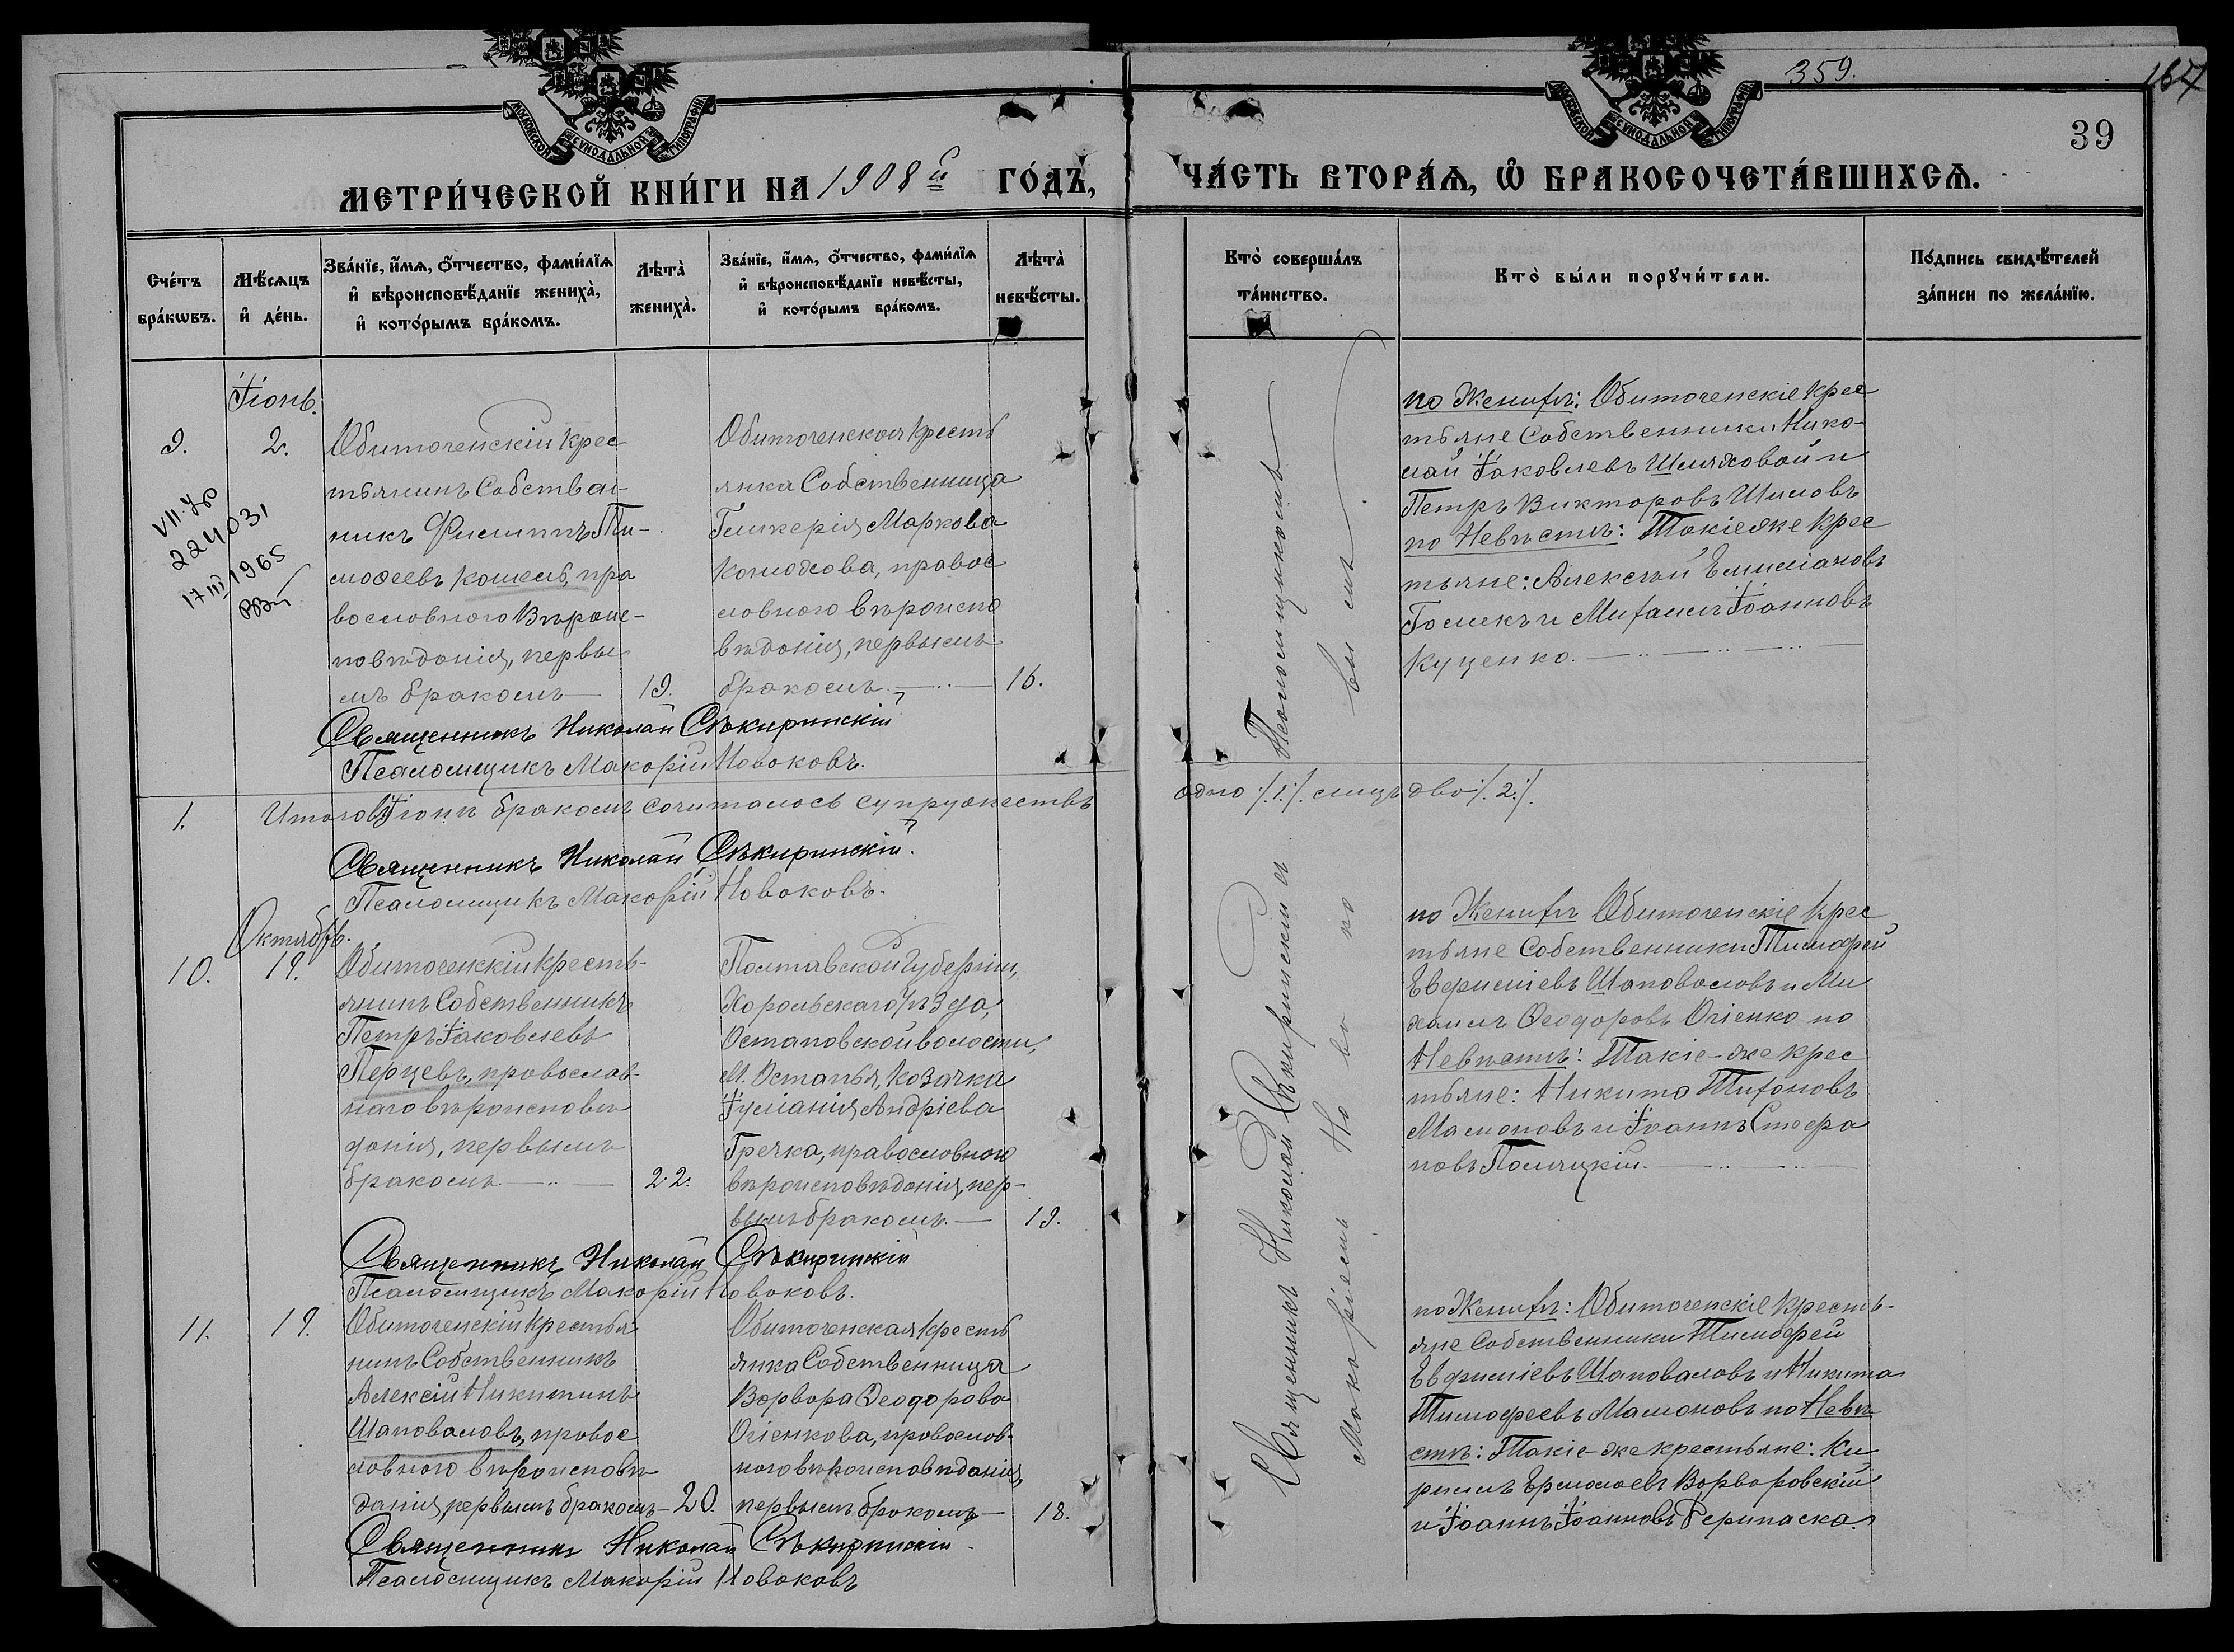 359.
167
39
МОСКОВСКОЙ СѴНОДАЛЬНОЙ ТИПОГРАФІИ
МОСКОВСКОЙ СѴНОДАЛЬНОЙ ТИПОГРАФІИ
МЕТРИ́ЧЕСКОЙ КНИ́ГИ НА 1908й ГО́ДЪ, ЧА́СТЬ ВТОРА́Ѧ, Ѽ БРАКОСОЧЕТА́ВШИХСѦ.
Сче́тъ бра́кѡвъ.
Мѣ́сѧцъ и҆ де́нь.
Зва́нїе, и҆́мѧ, ѻ҆́тчество, фами́лїѧ и҆ вѣроисповѣ́данїе жениха̀, и҆ кото́рымъ бра́комъ.
Лѣта̀ жениха̀.
Зва́нїе, и҆́мѧ, ѻ҆́тчество, фами́лїѧ и҆ вѣроисповѣ́данїе невѣ́сты, и҆ кото́рымъ бра́комъ.
Лѣта̀ невѣ́сты.
Кто̀ соверша́лъ та́инство.
Кто̀ бы́ли порꙋчи́тели.
По́дпись свидѣ́телей за́писи по жела́нїю.
Іюнь.
9.
2.
VII-УР
224031
17 III 1965
Обиточенскій крес
тьянинъ Собствен-
никъ Филиппъ Ти-
моѳеевъ Кошель, пра
вославнаго Вѣроис-
повѣданія, первы
мъ бракомъ
19.
Обиточенская кресть
янка Собственница
Гликерія Маркова
православ
словнаго вѣроиспо
вѣданія, первымъ
бракомъ.
16.
по Женихѣ: Обиточенскіе крес
тьяне Собственники Нико-
лай Іаковлевъ Шляховой и
Петръ Викторовъ Шиловъ
по Невѣстѣ: Такіе же крес
тьяне: Алексѣй Емиліановъ
Голикъ и Михаилъ Іоанновъ
Куценко.
Священникъ Николай Сѣкиринскій
Псаломщикъ Макарій Новаковъ.
1.
Итого въ Іюнѣ бракомъ сочиталось супружествъ одно /.1./. лицъ два /.2./.
Священникъ Николай Сѣкиринскій.
Псаломщикъ Макарій Новаковъ.
Октябрь.
10.
19.
Обиточенскій кресть-
янинъ Собственникъ
Петръ Іаковлевъ
Перцевъ, православ-
наго вѣроисповѣ
данія, первымъ
бракомъ.
22.
Полтавской губерніи,
Хорольскаго уѣзда,
Остаповской волости,
М. Остапья, козачка
Іуліанія Андріева
Гречка, православнаго
вѣроисповѣданія, пер-
вымъ бракомъ.
19.
по Женихѣ Обиточенскіе крес
тьяне Собственники Тимофей
Евфиміевъ Шаповаловъ и Ми
хаилъ Ѳеодоровъ Огіенко по
Невѣстѣ: Такіе-же крес
тьяне: Никита Тихоновъ
Мамоновъ и Іоаннъ Стефа
новъ Поляцкій.
Священникъ Николай Сѣкиринскій
Псаломщикъ Макарій Новаковъ.
11.
19.
Обиточенскій крестья
нинъ Собственникъ
Алексій Никитинъ
Шаповаловъ, правос
лавнаго вѣроисповѣ
данія, первымъ бракомъ
20.
Обиточенская кресть
янка Собственница
Варвара Ѳеодорова
Огіенкова, православ-
наго вѣроисповѣданія,
первымъ бракомъ
18.
по Женихѣ: Обиточенскіе кресть-
яне Собственники Тимофей
Евфиміевъ Шаповаловъ и Никита
Тимофеевъ Мамоновъ по Невѣ
стѣ: Такіе-же крестьяне: Ки
риллъ Ермолаевъ Варваровскій
и Іоаннъ Іоанновъ Дерипаска.
Священникъ Николай Сѣкиринскій.
Псаломщикъ Макарій Новаковъ
Священникъ Николай Сѣкиринскій съ Псаломщикомъ
Макаріемъ Новаковымъ